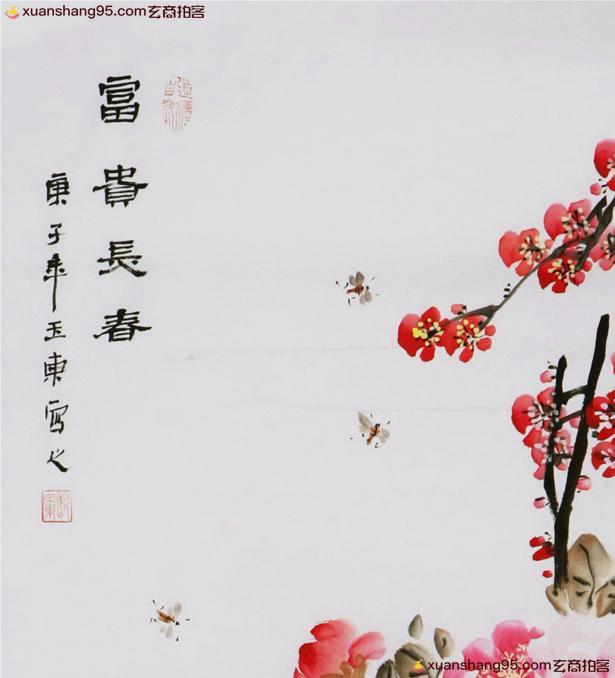 xuanshang95.com玄商拍客
富貴長春
庚子年玉東寫之
xuanshang95.com玄商拍客